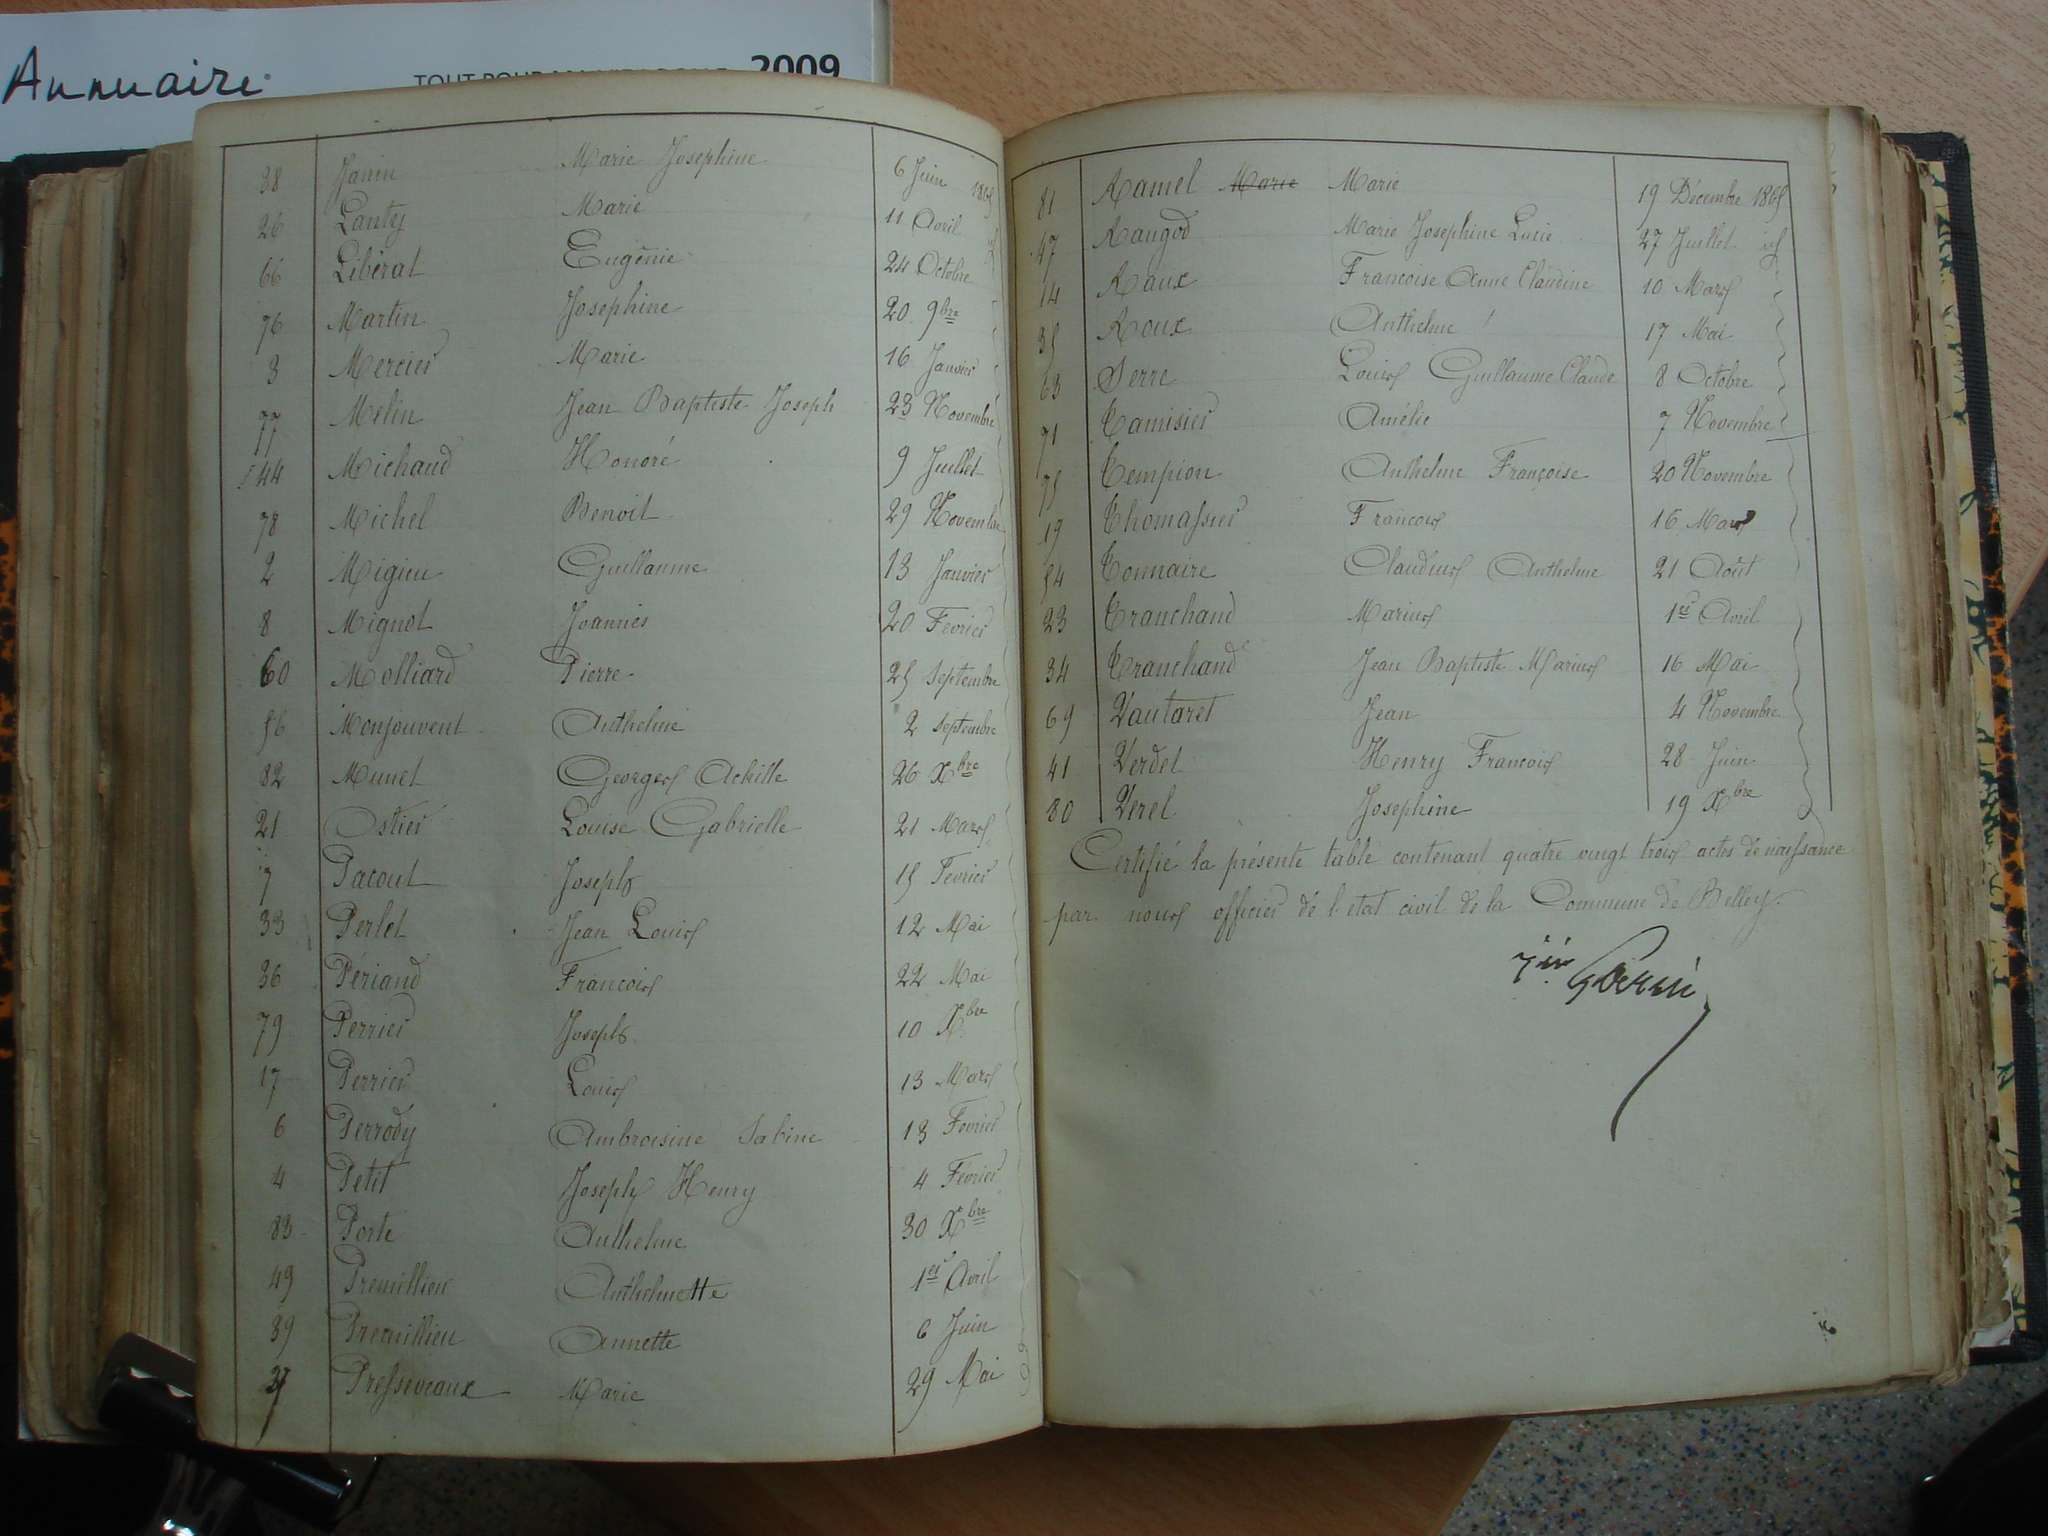 Annuaire
2009
38 Janin Marie Josephine 6 Juin 1865
26 Lanty Marie 11 Avril id
66 Libérat Eugénie 24 Octobre
76 Martin Josephine 20 9bre
3 Mercier Marie 16 Janvier
77 Metin Jean Baptiste Joseph 23 Novembre
44 Michaud Honoré 9 Juillet
78 Michel Benoit 29 Novembre
2 Migieu Guillaume 13 Janvier
8 Mignot Joannès 20 Fevrier
60 Molliard Pierre 25 Septembre
56 Monjouvent Anthelme 2 Septembre
82 Munet Georges Achille 26 Xbre
21 Ostier Louise Gabrielle 21 Mars
7 Pacout Joseph 15 Fevrier
33 Perlet Jean Louis 12 Mai
36 Périand François 22 Mai
79 Perrier Joseph 10 Xbre
17 Perrier Louis 13 Mars
6 Perrody Ambroisine Sabine 13 Fevrier
4 Petit Joseph Henry 4 Fevrier
83 Porte Anthelme 30 Xbre
49 Premillieu Anthelmette 1er Avril
39 Premillieu Annette 6 Juin
37 Presseveaux Marie 29 Mai
81 Ramel Marie Marie 19 Décembre 1865
47 Raugod Marie Josephine Lucie 27 Juillet id
14 Raux Françoise Anne Claudine 10 Mars
35 Roux Anthelme 17 Mai
63 Serre Louis Guillaume Claude 8 Octobre
71 Tamisier Amélie 7 Novembre
75 Tempion Anthelme Françoise 20 Novembre
19 Thomassier François 16 Mars
54 Tonnaire Claudius Anthelme 21 Août
23 Tranchand Marius 1er Avril
34 Tranchand Jean Baptiste Marius 16 Mai
69 Vautaret Jean 4 Novembre
41 Verdet Henry François 28 Juin
80 Verel Josephine 19 Xbre
Certifié la présente table contenant quatre vingt trois actes de naissance
par nous officier de l'état civil de la Commune de Belley.